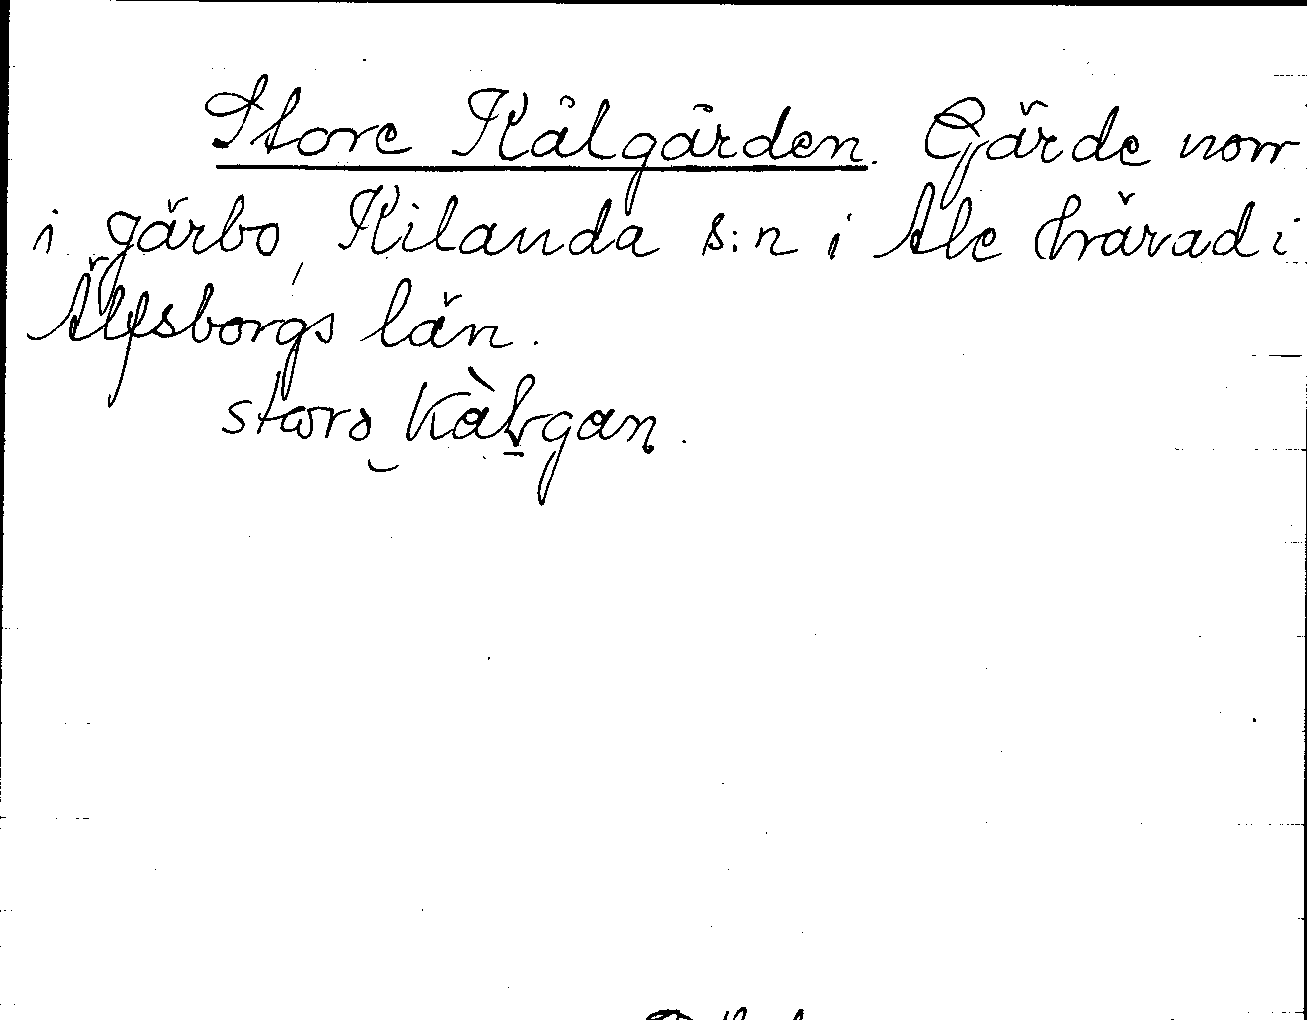 Store Kålgården. Gärde norr
i gärbo, Kilanda s:n i Ale härad i
Älfsborgs län.